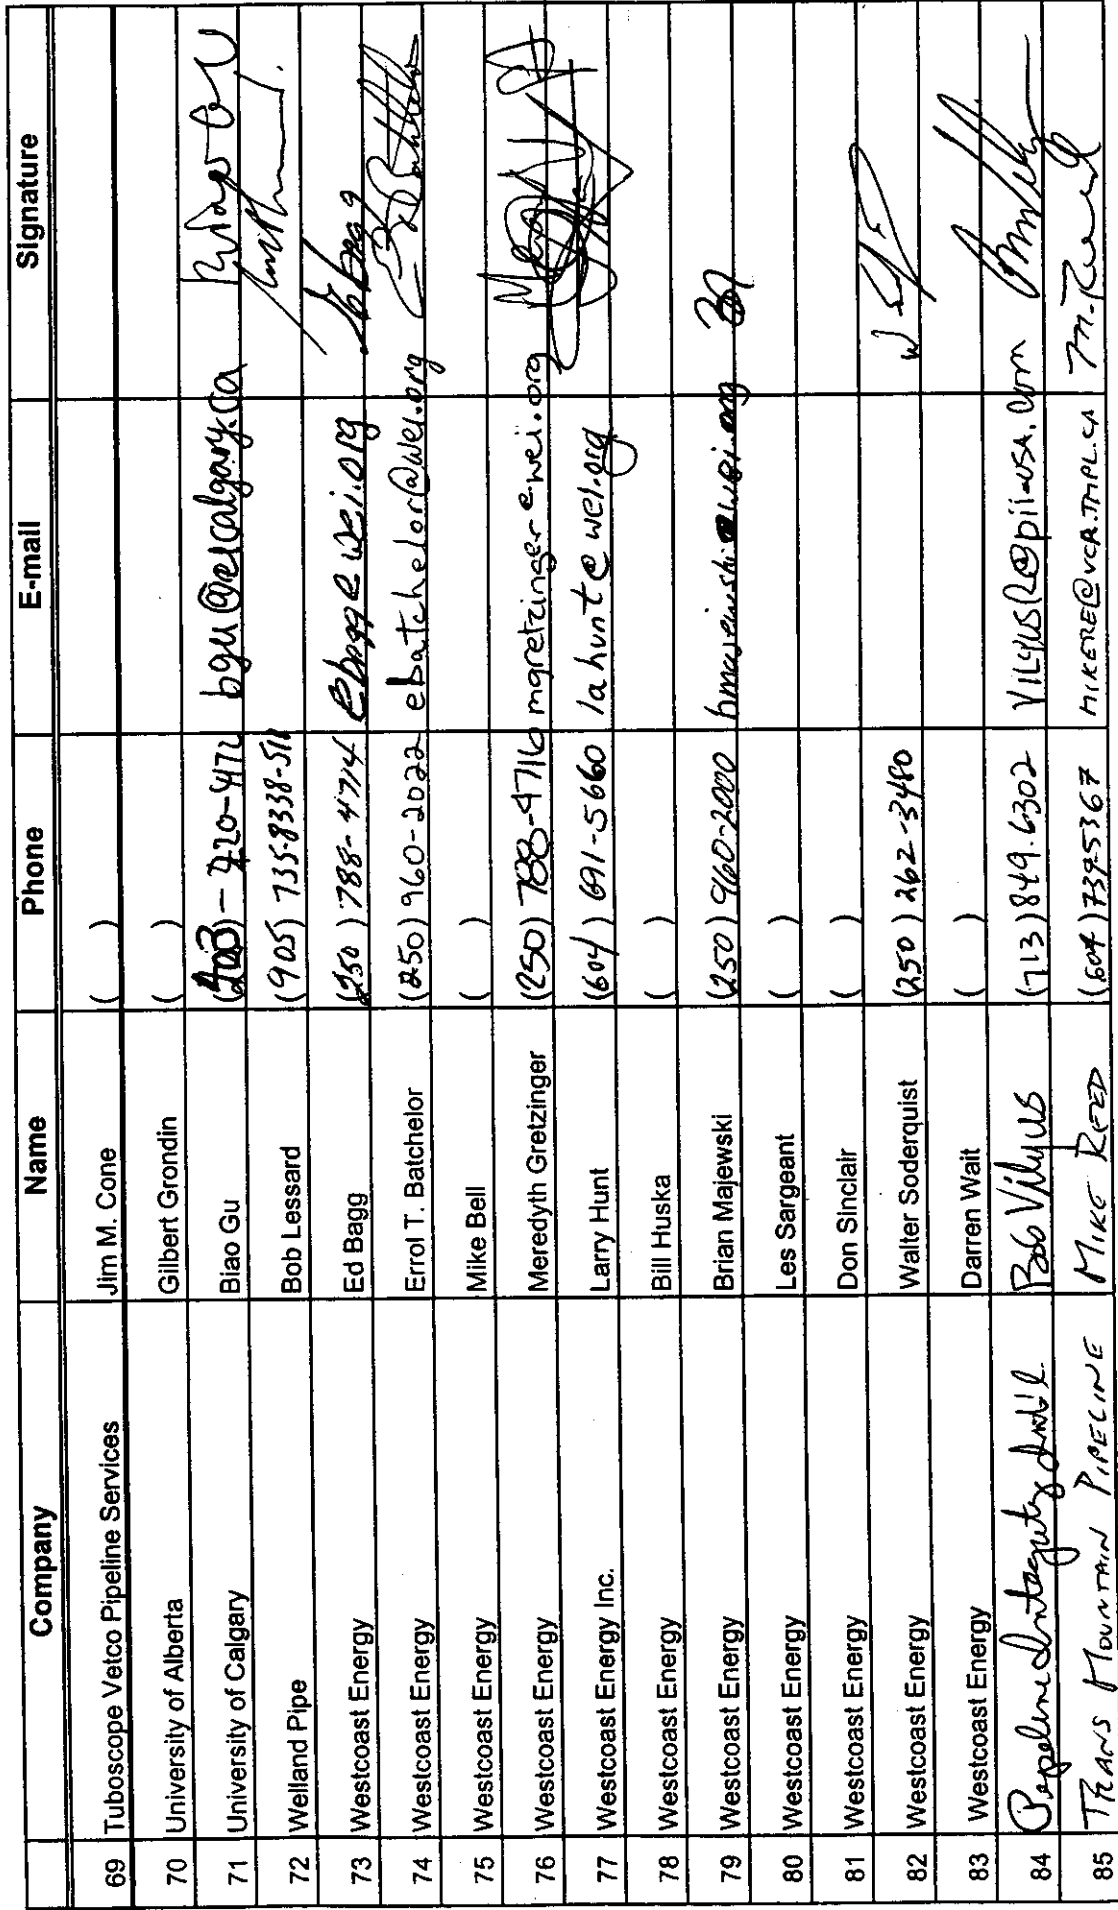 Company Name Phone E-mail Signature
69 Tuboscope Vetco Pipeline Services Jim M. Cone ( )
70 University of Alberta Gilbert Grondin ( )
71 University of Calgary Biao Gu (403)-220-4172 bgu@ Biao Gu
72 Welland Pipe Bob Lessard (905) 735-8338-511
73 Westcoast Energy Ed Bagg (250) 788-4714 ebagg@wei.org
74 Westcoast Energy Errol T. Batchelor (250) 960-2022 ebatchelor@wei.org
75 Westcoast Energy Mike Bell ( )
76 Westcoast Energy Meredyth Gretzinger (250) 788-4716 mgretzinger@wei.org
77 Westcoast Energy Inc. Larry Hunt (604) 691-5660 lahunt@wei.org
78 Westcoast Energy Bill Huska ( )
79 Westcoast Energy Brian Majewski (250) 960-2000 bmajewski@wei.org
80 Westcoast Energy Les Sargeant ( )
81 Westcoast Energy Don Sinclair ( )
82 Westcoast Energy Walter Soderquist (250) 262-3480
83 Westcoast Energy Darren Wait ( )
84 Pipeline Integrity Int'l Bob Vilyus (713) 849.6302 VILYUSR@pii-USA.com
85 TRANS MOUNTAIN PIPELINE MIKE REED (604) 739-5367 MIKERE@VCR.TMPL.CA M. Reed